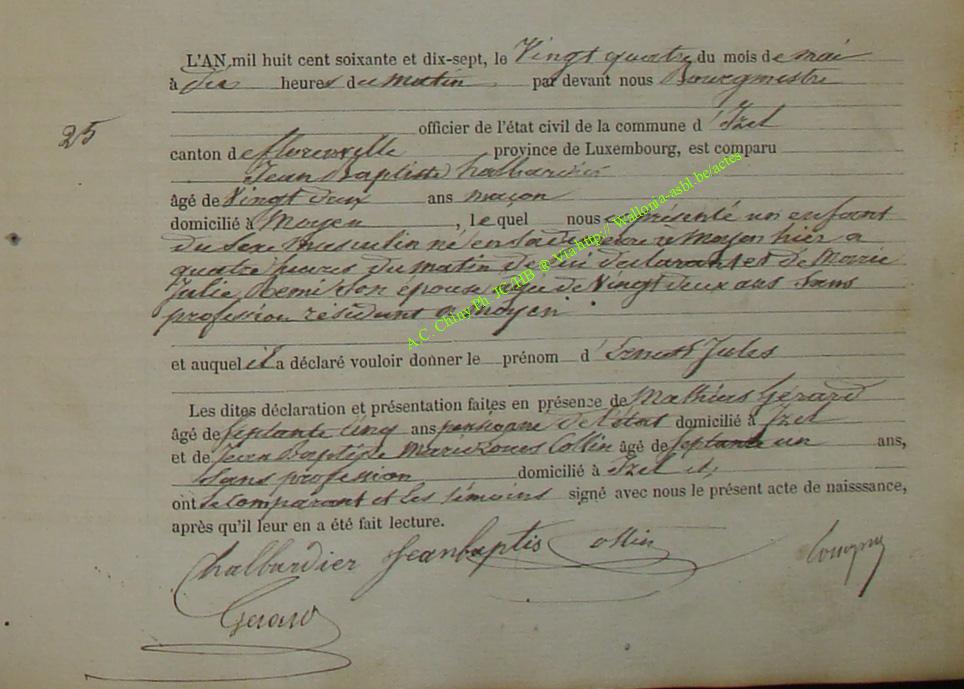 L'AN mil huit cent soixante et dix-sept, le Vingt quatre du mois de mai
à dix heures du matin par devant nous Bourgmestre
25
officier de l'état civil de la commune d'Izel
canton de florenville province de Luxembourg, est comparu
Jean Baptiste halbardier
âgé de Vingt deux ans maçon
domicilié à Moyen, lequel nous a présenté un enfant
du sexe masculin né en sa demeure à Moyen hier a
quatre heures du matin de lui déclarant et de Marie
Julie Remi son épouse agée de Vingt deux ans Sans
profession résidant a moyen
et auquel il a déclaré vouloir donner le prénom d'Ernest Jules
Les dites déclaration et présentation faites en présence de Mathieu Gérard
âgé de septante cinq ans pensionné de l'état domicilié à Izel
et de Jean Baptiste Marie Louis Collin âgé de septante un ans,
Sans profession domicilié à Izel et,
ont le Comparant et les témoins signé avec nous le présent acte de naisssance,
après qu'il leur en a été fait lecture.
Chalbardier Jeanbaptis Collin
Gerard
A.C. Chiny Ph JC/HB ® Via http://Wallonia-asbl.be/actes